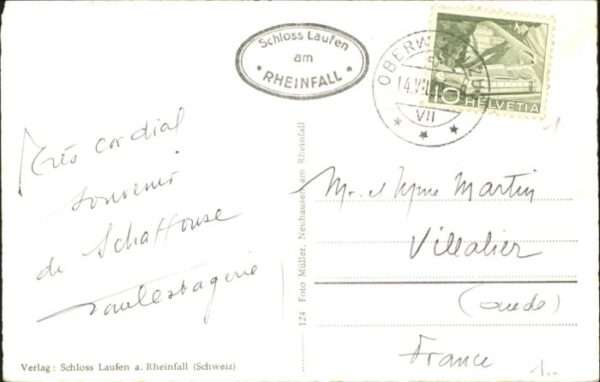 Schloss Laufen
am
• RHEINFALL •
VII
10 HELVETIA
Très cordial
souvenir
de Schaffouse
124 Foto Müller, Neuhausen am Rheinfall
Mr. et Mme Martin
Villalier
(Aude)
France
Verlag: Schloss Laufen a. Rheinfall (Schweiz)